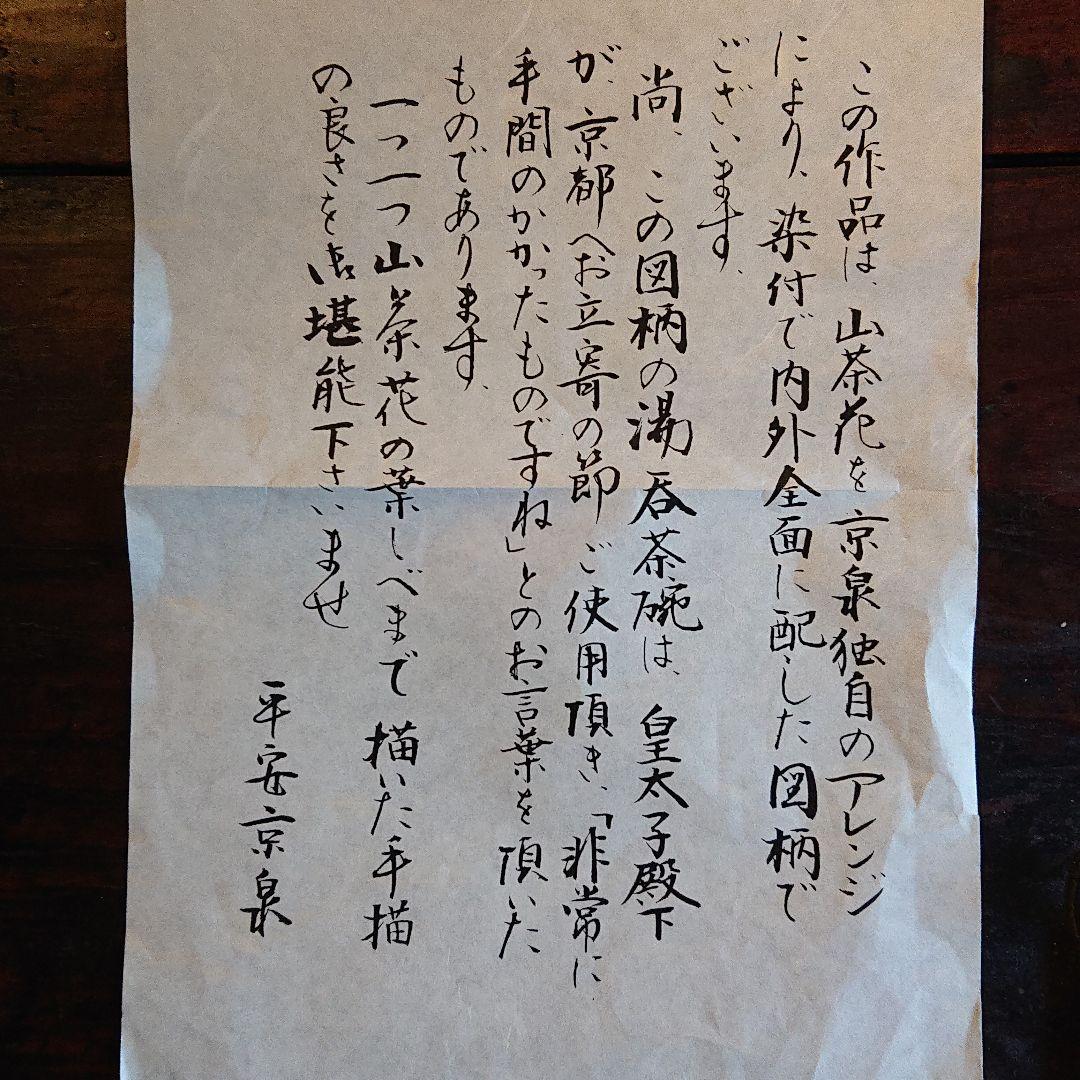 この作品は、山茶花を京泉独自のアレンジ
により、染付で内外全面に配した図柄で
ございます、
尚、この図柄の湯呑茶碗は、皇太子殿下
が、京都へお立寄の節ご使用頂き、「非常に
手間のかかったものですね」とのお言葉を頂いた
ものであります、
一つ一つ山茶花の葉しべまで描いた手描
の良さを御堪能下さいませ
平安京泉